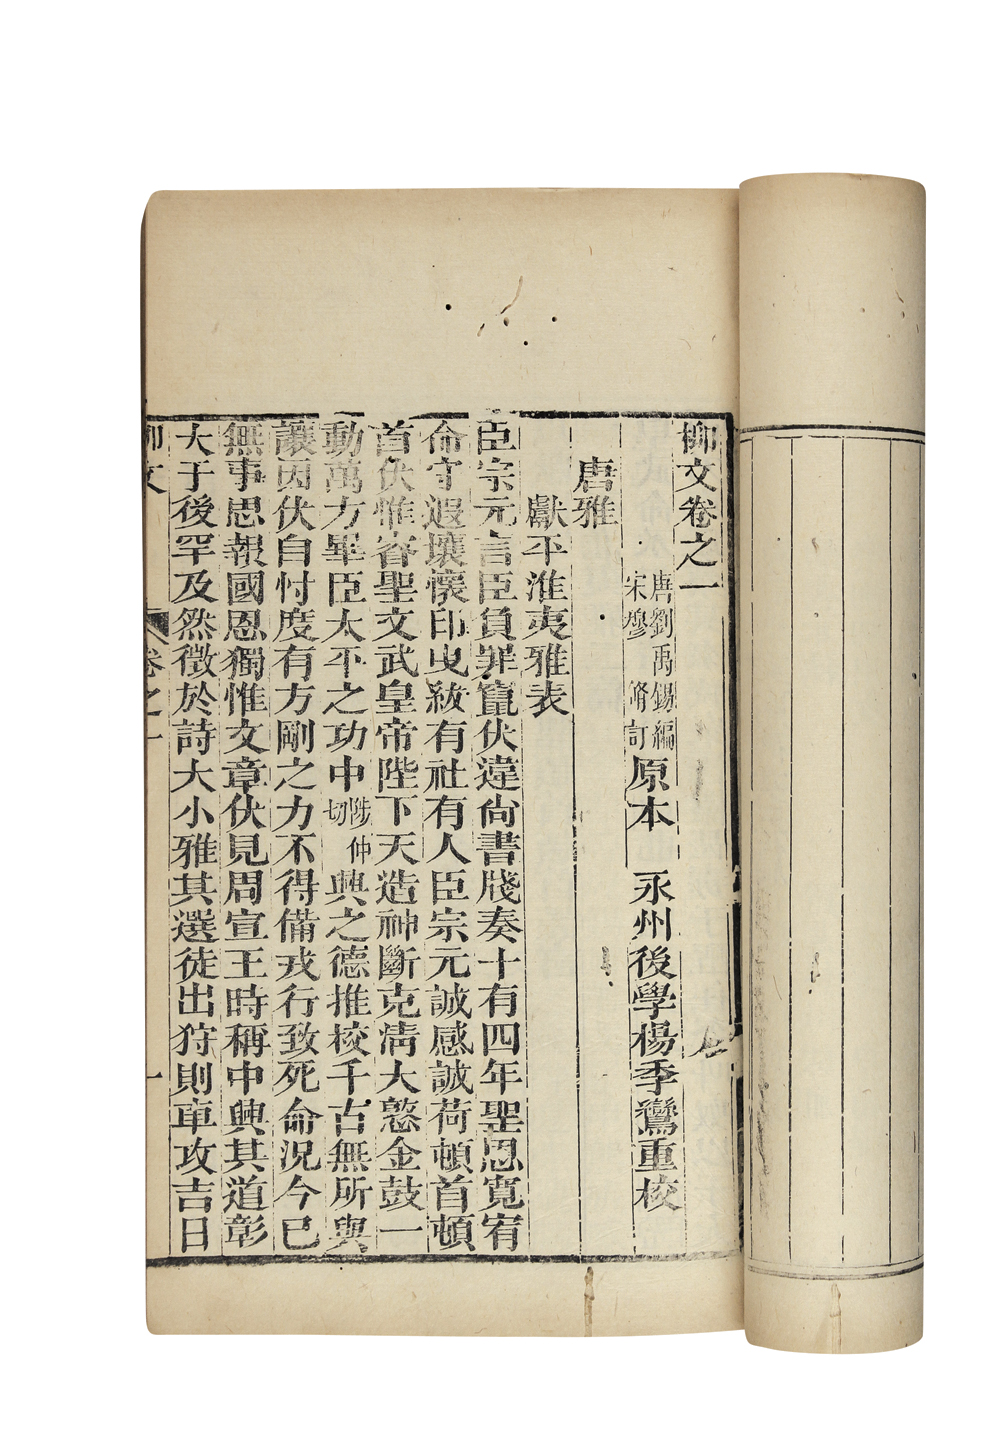 柳文卷之一
唐劉禹錫編
宋穆脩訂
原本 永州後學楊季鸞重校
唐雅
獻平淮夷雅表
臣宗元言臣負罪竄伏違尙書牋奏十有四年聖恩寬宥
命守遐壤懷印曳紱有社有人臣宗元誠感誠荷頓首頓
首伏惟睿聖文武皇帝陛下天造神斷克淸大憝金鼓一
動萬方畢臣太平之功中陟仲切興之德推校千古無所與
讓因伏自忖度有方剛之力不得備戎行致死命況今已
無事思報國恩獨惟文章伏見周宣王時稱中興其道彰
大于後罕及然徵於詩大小雅其選徒出狩則車攻吉日
柳文
卷之一
一